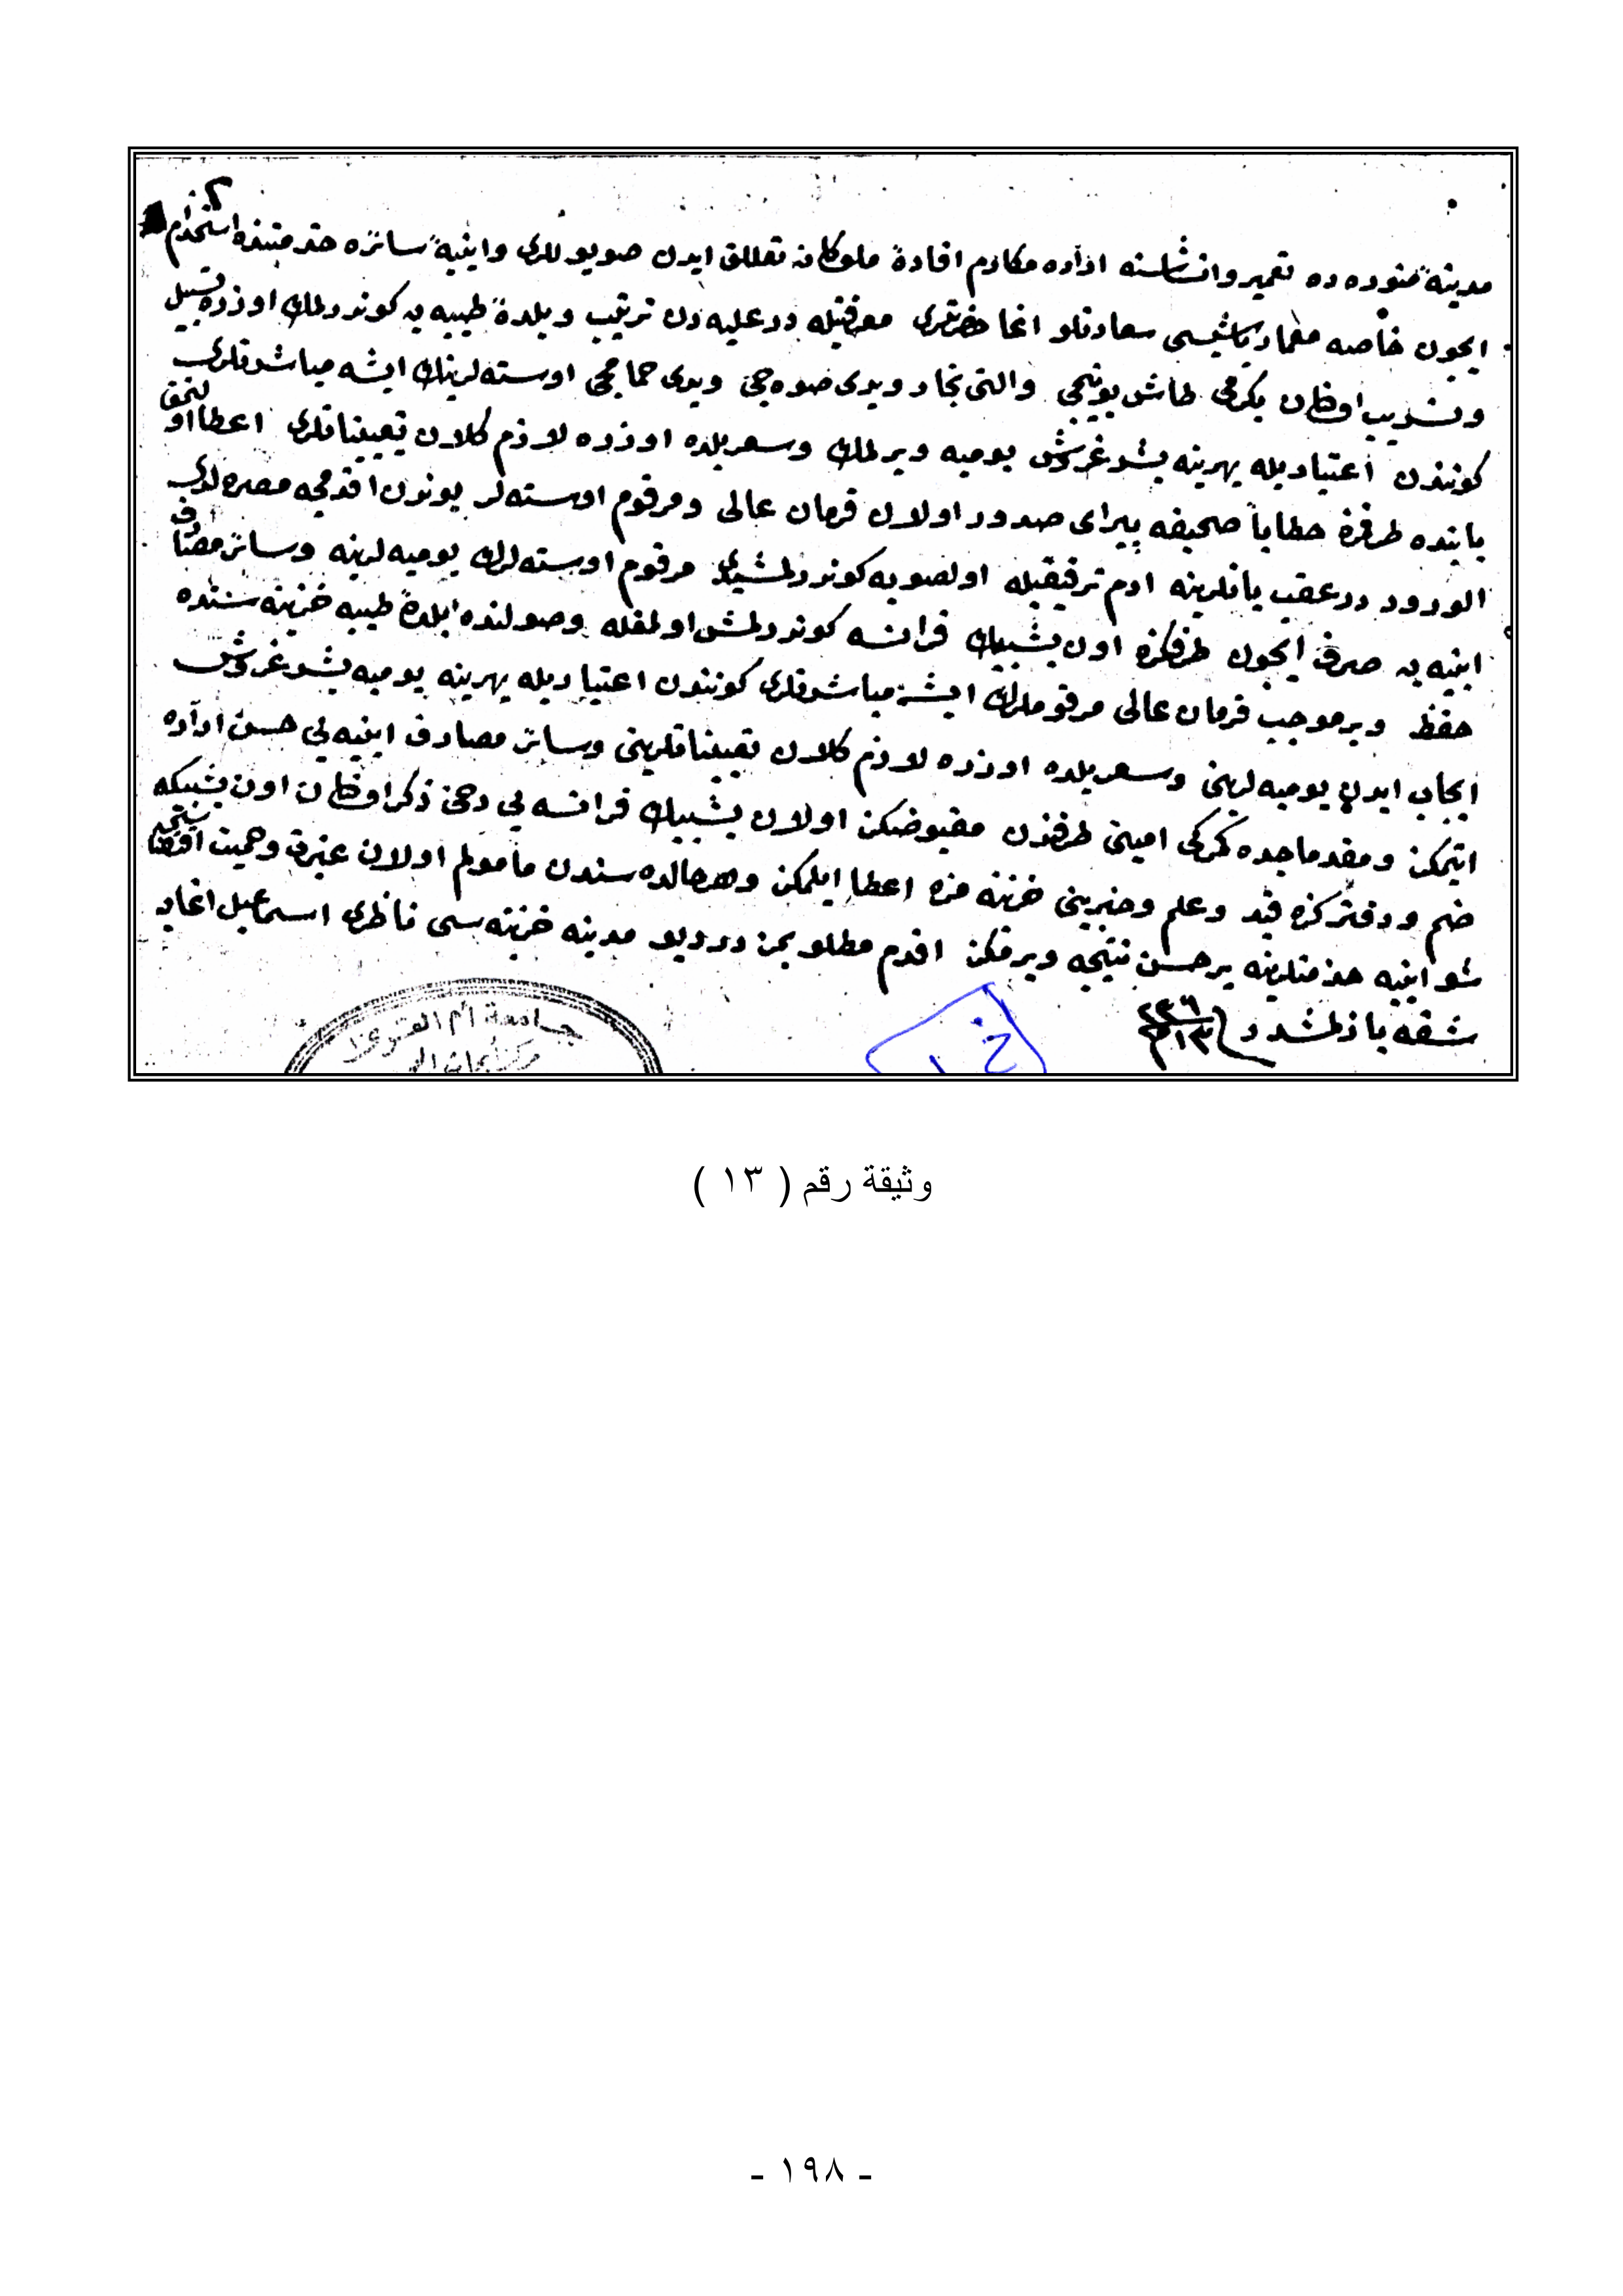 مدينهٔ منوره ده تعمير وانشاسنه اراده مكارم افادهٔ ملوكانه تعلق ايدن صويوللرى وابنيهٔ سائره خدمتنده استخدام
ايچون خاصه معمار باشيسى سعادتلو اغا حضرتلرى معرفتيله درعليه دن ترتيب وبلدهٔ طيبه يه كوندرلمك اوزره تسبيل
وتسريب اولنان يكرمى طاش يونيجى والتى نجار ويدى صوه جى ويدى حمامجى اوسته لرينك ايشه مباشرتلرى
كونندن اعتباريله بهرينه بشر غروش يوميه ويرلمك وسعر بلده اوزره لازم كلان تعييناتلرى اعطا اولنمق
بابنده طرفمزه خطاباً صحيفه پيراى صدور اولان فرمان عالى ومرقوم اوسته لر بوندن اقدمجه مصره لدى
الورود درعقب يانلرينه ادم ترفيقيله اولصوبه كوندرلمشيدى مرقوم اوسته لرك يوميه لرينه وسائر مصارف
ابنيه يه صرف ايچون طرفكزه اون بشبيك فرانسه كوندرلمش اولمغله وصولنده بلدهٔ طيبه خزينه سنده
حفظ وبرموجب فرمان عالى مرقوملرك ايشه مباشرتلرى كونندن اعتباريله بهرينه يوميه بشر غروش
ايجاب ايدن يوميه لرينى وسعر بلده اوزره لازم كلان تعييناتلرينى وسائر مصارف ابنيه يى حسن اداره
ايتمكز ومقدماجده كمركى امينى طرفندن مقبوضكز اولان بشبيك فرانسه يى دخى ذكر اولنان اون بشبيكه
ضم ودفتركزه قيد وعلم وخبرينى خزينه مزه اعطا ايلمكز وهرحالده سزدن مأمولم اولان غيرت وحميت اقتضاسنجه
شو ابنيه خدمتلرينه برحسن نتيجه ويرمكز اقدم مطلوبمزدر ديو مدينه خزينه سى ناظرى اسماعيل اغايه
شقه يازلمشدر
جامعة أم القرى
وثيقة رقم ( ١٣ )
- ١٩٨ -